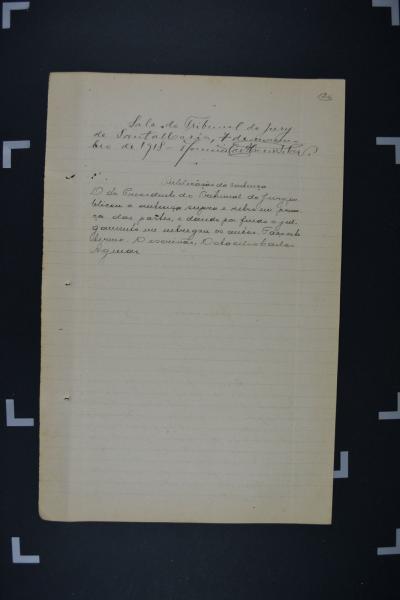 Sala do Tribunal do Jury
de Santa Maria, 7 de novem-
bro de 1918 -
Publicação da sentença
O dr Presidente do Tribunal do Jury pu-
blicou a sentença supra e retro em presen-
ça das partes, e dando por findo o jul-
gamento me entregou os autos. Faço este
termo. O escrivão,
Aguiar